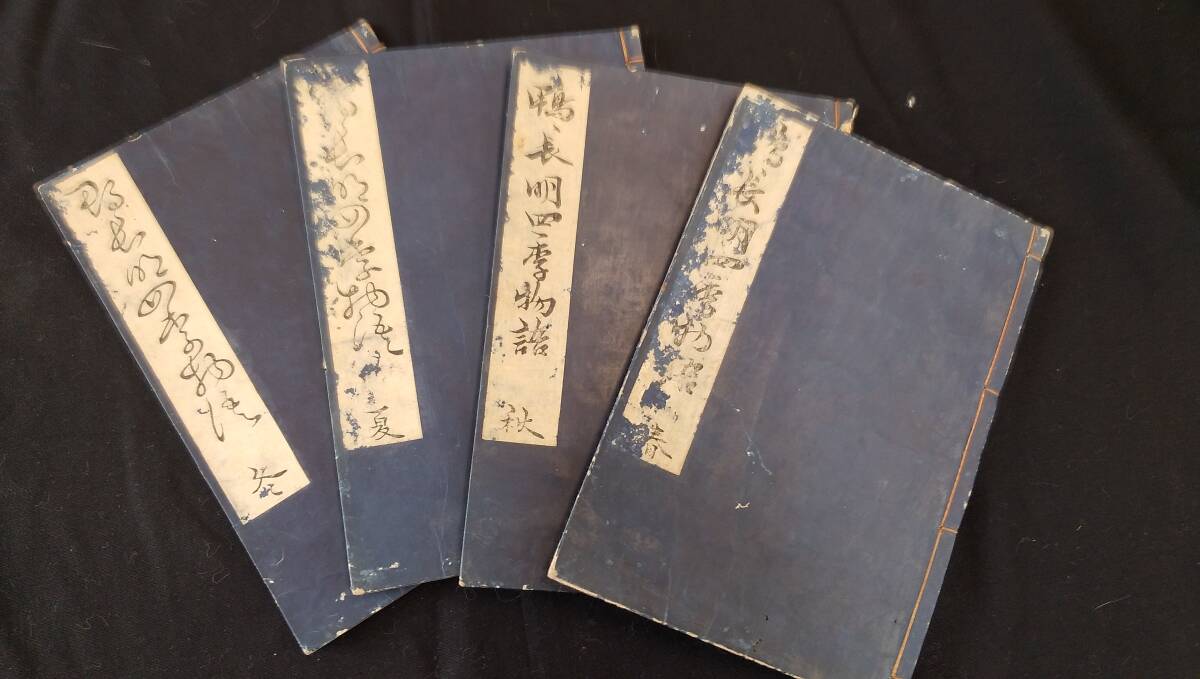 鴨長明四季物語 冬
長明四季物語 夏
鴨長明四季物語 秋
長明四季物語 春